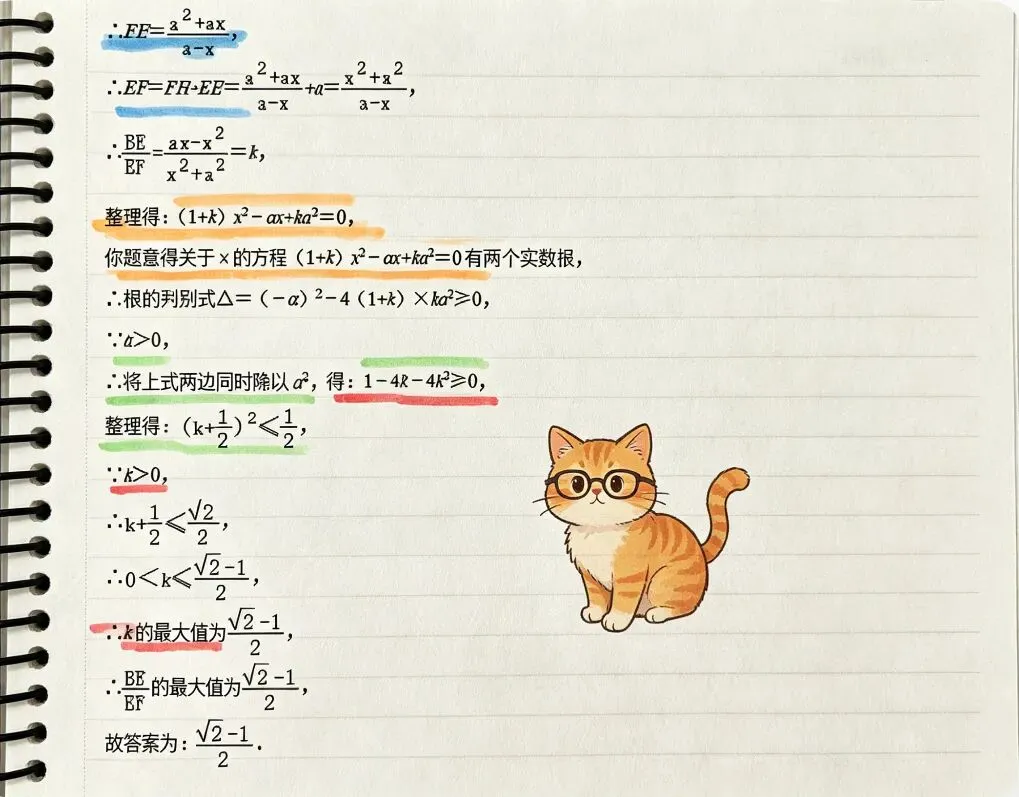 ∴FE=(a²+ax)/(a-x),
∴EF=FH+EE=(a²+ax)/(a-x)+a=(x²+a²)/(a-x),
∴BE/EF=(ax-x²)/(x²+a²)=k,
整理得:(1+k)x²-ax+ka²=0,
你题意得关于x的方程(1+k)x²-ax+ka²=0有两个实数根,
∴根的判别式△=(-a)²-4(1+k)×ka²≥0,
∵a>0,
∴将上式两边同时除以a²,得:1-4k-4k²≥0,
整理得:(k+1/2)²≤1/2,
∵k>0,
∴k+1/2≤√2/2,
∴0<k≤(√2-1)/2,
∴k的最大值为(√2-1)/2,
∴BE/EF的最大值为(√2-1)/2,
故答案为:(√2-1)/2.